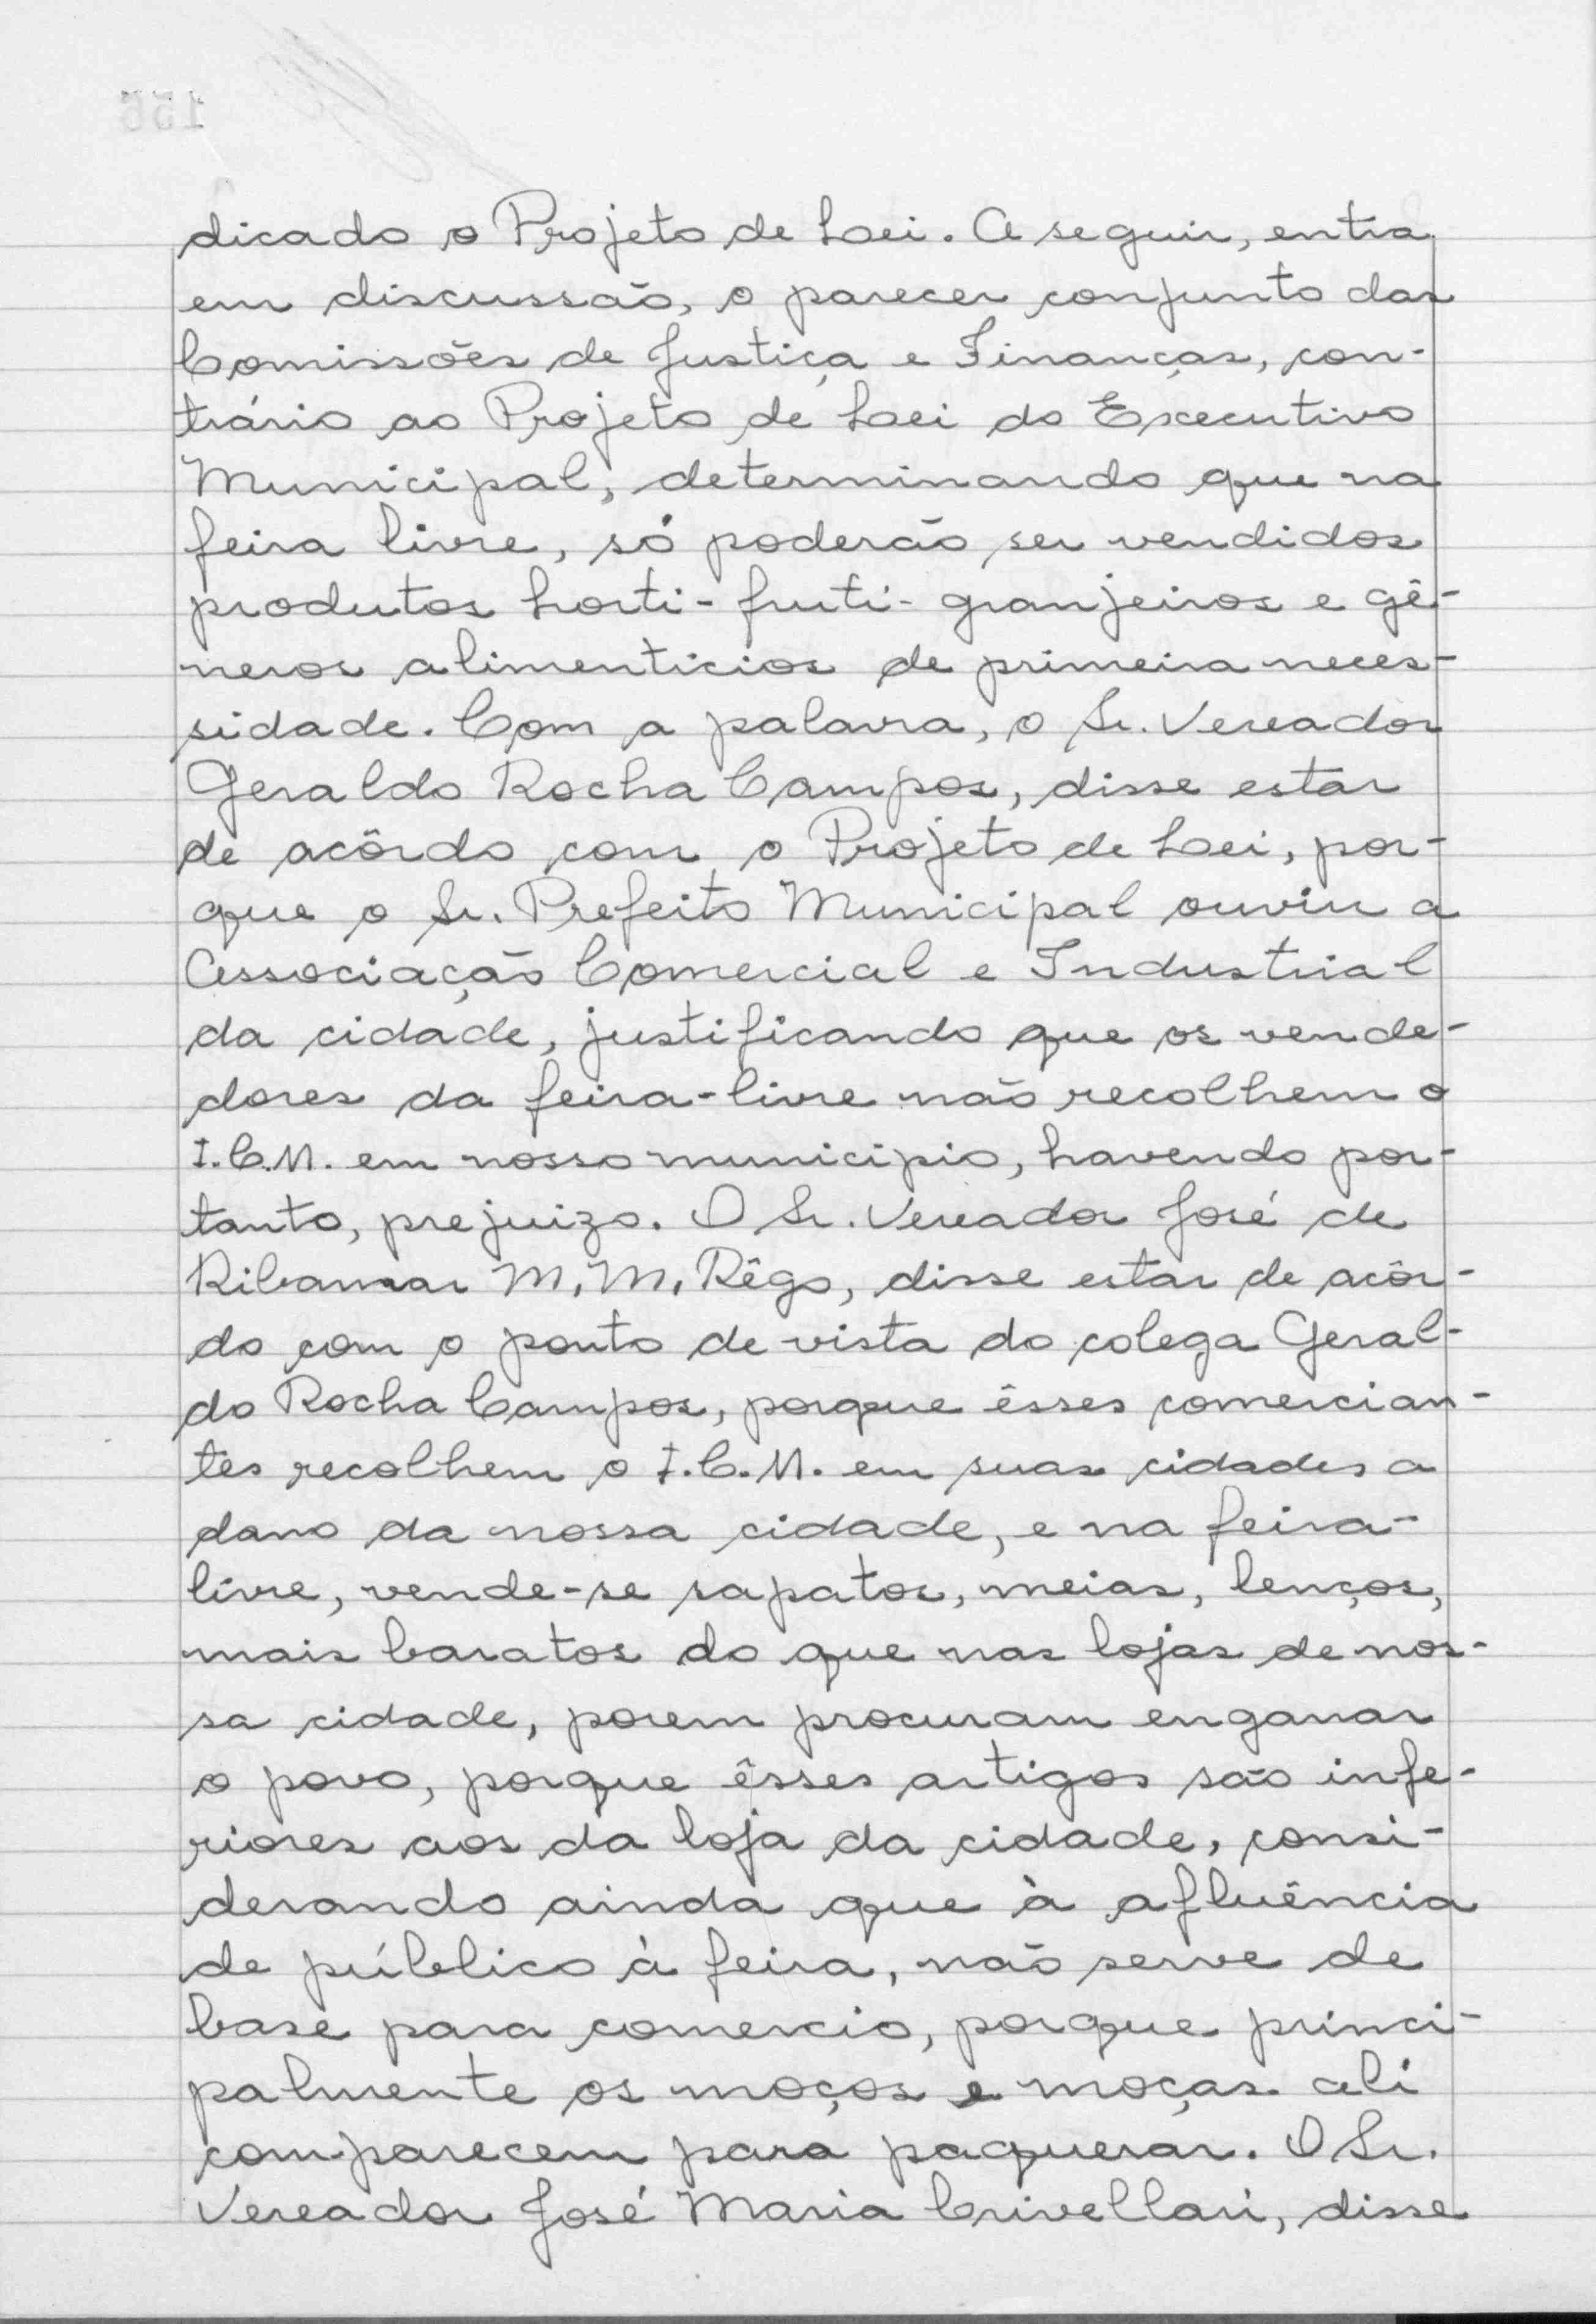 dicado o Projeto de Lei. A seguir, entra
em discussão, o parecer conjunto das
Comissões de Justiça e Finanças, con-
trário ao Projeto de Lei do Executivo
Municipal, determinando que na
feira livre, só poderão ser vendidos
produtos horti-fruti-granjeiros e gê-
neros alimenticios de primeira neces-
sidade. Com a palavra, o Sr. Vereador
Geraldo Rocha Campos, disse estar
de acôrdo com o Projeto de Lei, por-
que o Sr. Prefeito Municipal ouviu a
Associação Comercial e Industrial
da cidade, justificando que os vende-
dores da feira-livre não recolhem o
I.C.M. em nosso municipio, havendo por-
tanto, prejuizo. O Sr. Vereador José de
Ribamar M. M. Rêgo, disse estar de acôr-
do com o ponto de vista do colega Geral-
do Rocha Campos, porque êsses comercian-
tes recolhem o I.C.M. em suas cidades a
dano da nossa cidade, e na feira-
livre, vende-se sapatos, meias, lenços,
mais baratos do que nas lojas de nos-
sa cidade, porem procuram enganar
o povo, porque êsses artigos são infe-
riores aos da loja da cidade, consi-
derando ainda que à afluência
de público à feira, não serve de
base para comercio, porque princi-
palmente os moços e moças ali
comparecem para paquerar. O Sr.
Vereador José Maria Crivellari, disse